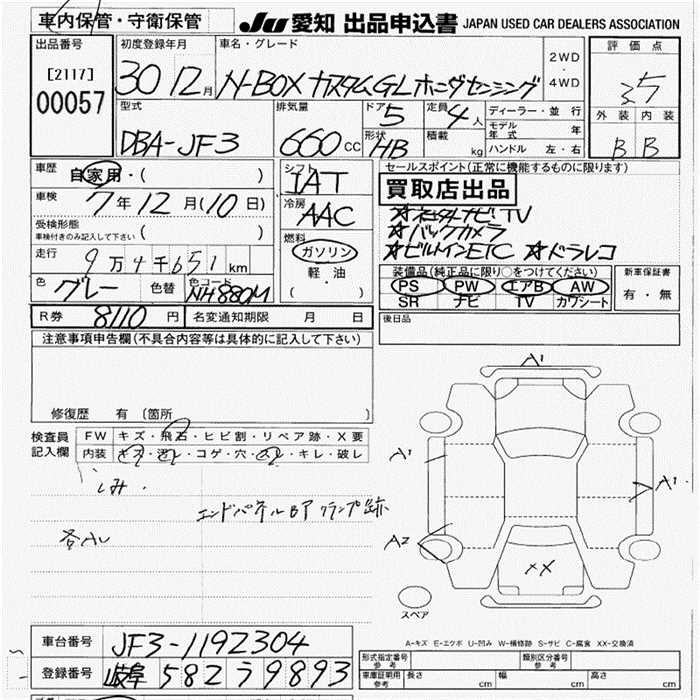 車内保管・守衛保管
JU 愛知 出品申込書 JAPAN USED CAR DEALERS ASSOCIATION
出品番号
[2117]
00057
初度登録年月
30 12月
車名・グレード
N-BOX カスタムGLホンダセンシング
2WD
・
4WD
評価点
3.5
外装 内装
B B
型式
DBA-JF3
排気量
660 CC
ドア 5
形状 HB
定員 4人
積載 kg
ディーラー・並行
モデル年式 年
ハンドル 左・右
車歴
自家用・( )
車検
7年12月(10日)
受検形態
車検付きのみ記入して下さい ( )
走行
9万4千651km
色
グレー
色替
色コード
NH880M
シフト
IAT
冷房
AAC
燃料
ガソリン
軽油
・
( )
セールスポイント(正常に機能するものに限ります)
買取店出品
☆社外ナビTV
☆バックカメラ
☆ビルトインETC ☆ドラレコ
装備品(純正品に限り○をつけてください)
PS PW エアB AW
SR ナビ TV カワシート
新車保証書
有・無
R券 8110円
名変通知期限 月 日
後日品
注意事項申告欄(不具合内容等は具体的に記入して下さい)
修復歴 有 〔箇所 〕
検査員
記入欄
FW キズ・飛石・ヒビ割・リペア跡・X要
内装 キズ・汚レ・コゲ・穴・スレ・キレ・破レ
しみ.
エンドパネルBア クランプ跡
各AU
A1
A1
A1
A2
XX
スペア
A-キズ E-エクボ U-凹み W-補修跡 S-サビ C-腐食 XX-交換済
車台番号 JF3-1192304
登録番号 岐阜 582 う 9893
形式指定番号
参考
類別区分番号
参考
車庫証明用
参考
長さ cm
幅 cm
高さ cm